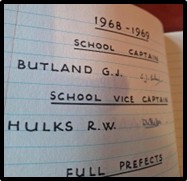 1968-1969
SCHOOL CAPTAIN
BUTLAND G.J.
SCHOOL VICE CAPTAIN
HULKS R.W.
FULL PREFECTS